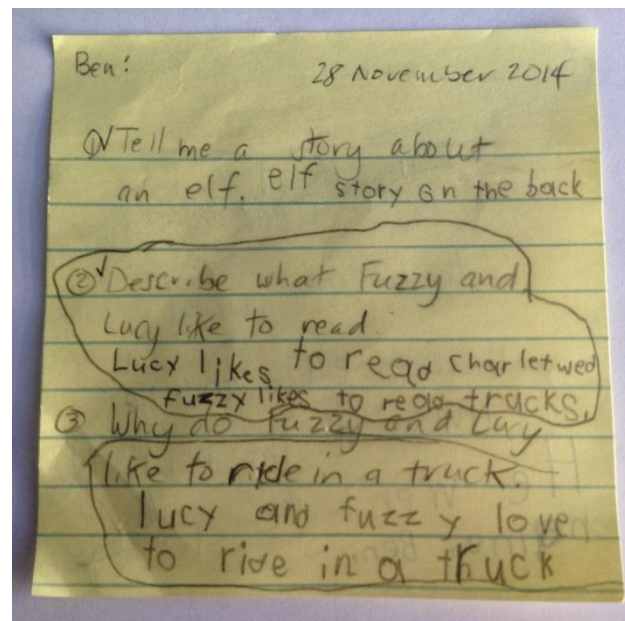 Ben:
28 November 2014
① Tell me a story about
an elf. elf story on the back
② Describe what Fuzzy and
Lucy like to read
Lucy likes to read charletwed
fuzzy likes to read trucks.
③ Why do Fuzzy and Lucy
like to ride in a truck.
lucy and fuzzy love
to ride in a truck